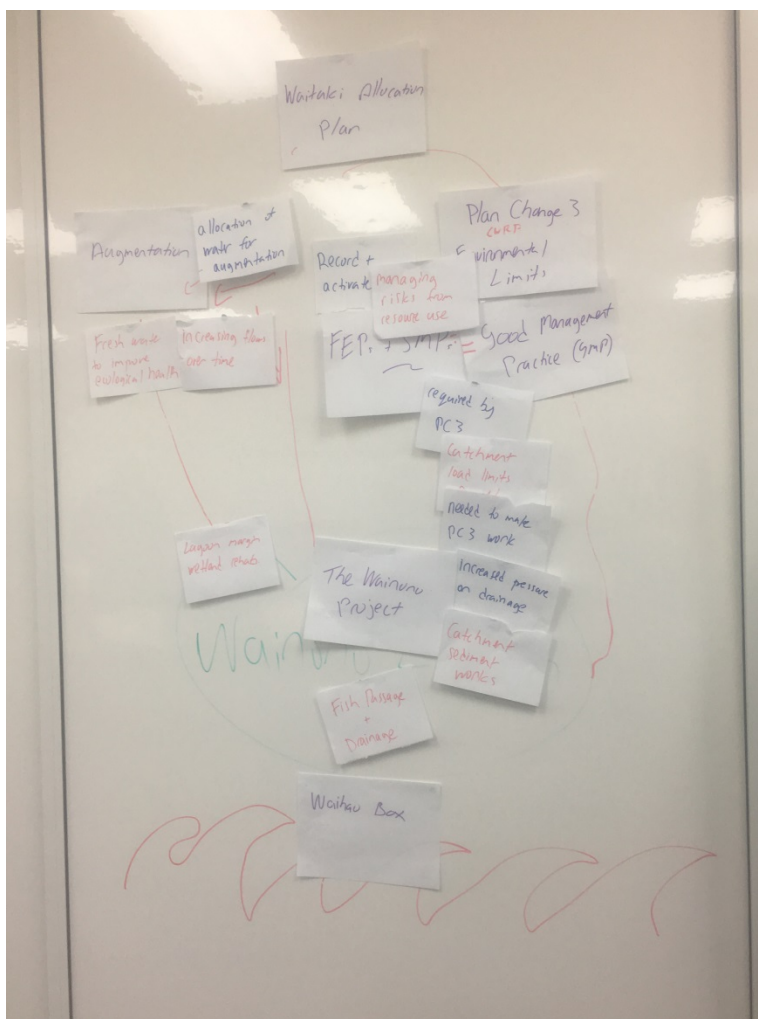 Waitaki Allocation
Plan
Augmentation
allocation of
water for
augmentation
Record +
activate
managing
risks from
resource use
Plan Change 3
LWRP
Environmental
Limits
Fresh water
to improve
ecological health
Increasing flows
over time
FEPs + SMPs
=
Good Management
Practice (GMP)
required by
PC3
Catchment
load limits
needed to make
PC3 work
Lagoon margin
wetland rehab
The Wainono
Project
Increased pressure
on drainage
Catchment
sediment
works
Fish Passage
+
Drainage
Waihao Box